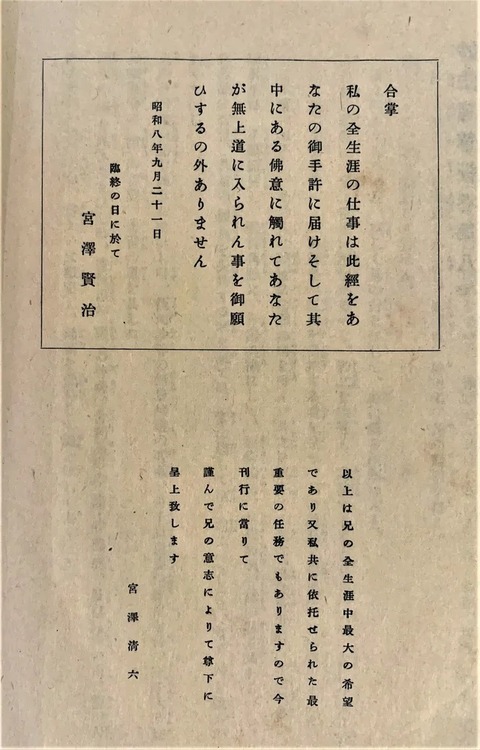 合掌
私の全生涯の仕事は此經をあ
なたの御手許に届けそして其
中にある佛意に觸れてあなた
が無上道に入られん事を御願
ひするの外ありません
昭和八年九月二十一日
臨終の日に於て
宮澤賢治
以上は兄の全生涯中最大の希望
であり又私共に依托せられた最
重要の任務でもありますので今
刊行に當りて
謹んで兄の意志によりて尊下に
呈上致します
宮澤淸六